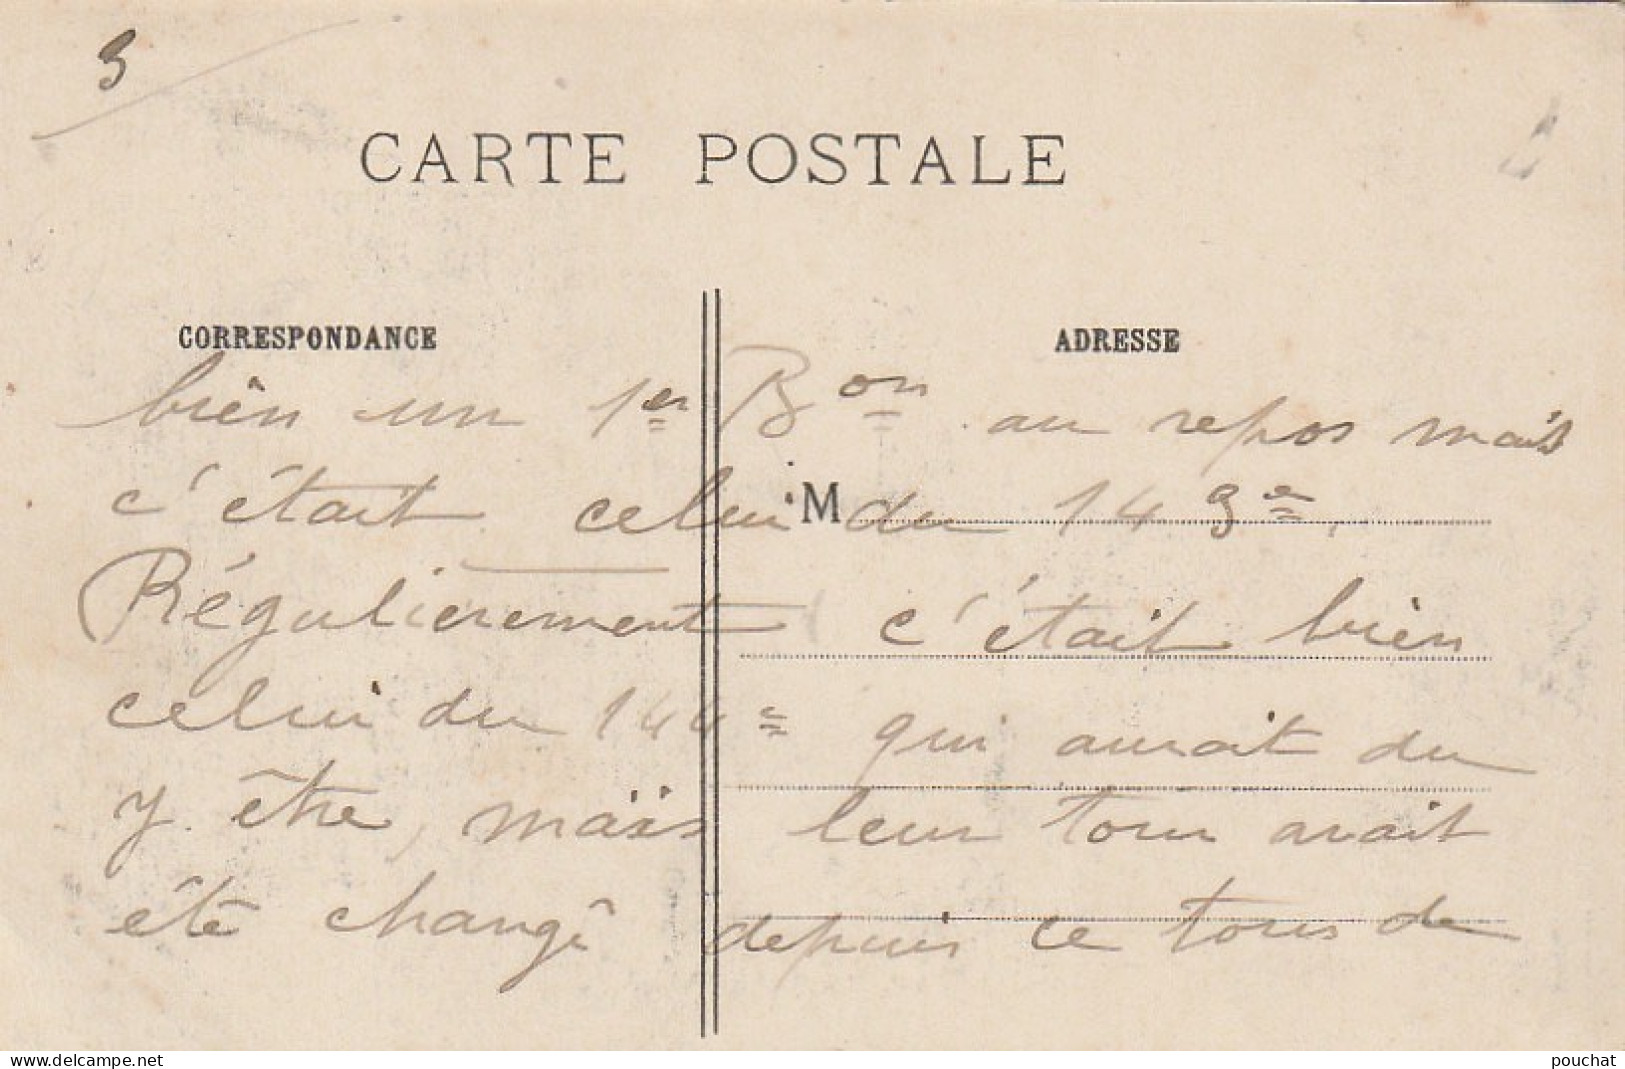 3
CARTE POSTALE
CORRESPONDANCE
ADRESSE
bien un 1er Bon au repos mais
c'était celui du 143e.
M
Régulierement c'était bien
celui du 144e qui aurait du
y être, mais leur tour avait
été changé depuis ce tour de
www.delcampe.net
pouchat